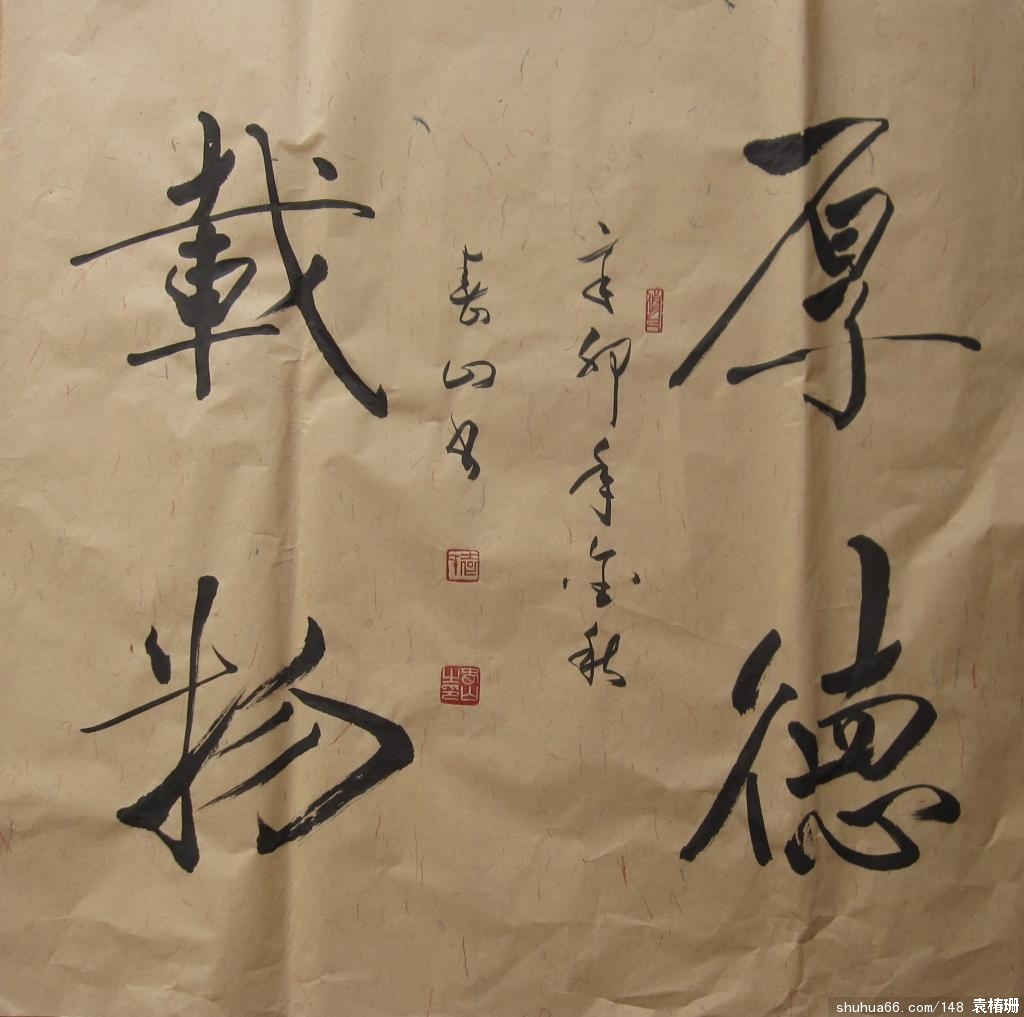 厚德
辛卯年金秋
春山书
載物
shuhua66.com/148 袁椿珊